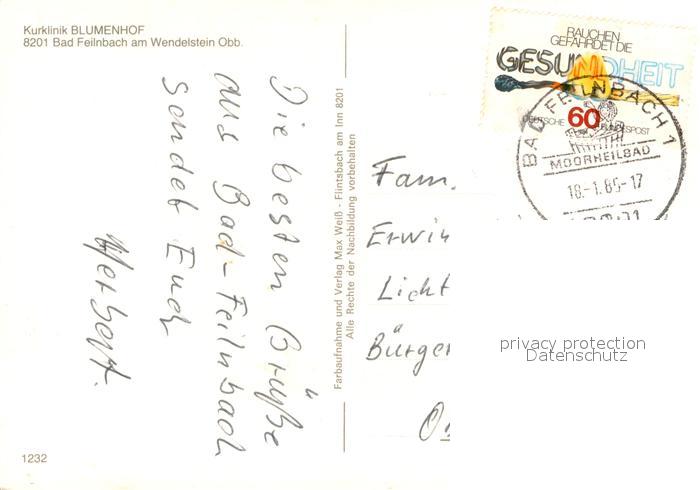 Kurklinik BLUMENHOF
8201 Bad Feilnbach am Wendelstein Obb.
Die besten Grüße
aus Bad-Feilnbach
sendet Euch
Herbert.
Farbaufnahme und Verlag Max Weiß - Flintsbach am Inn 8201
Alle Rechte der Nachbildung vorbehalten
RAUCHEN
GEFÄHRDET DIE
GESUNDHEIT
DEUTSCHE 60 BUNDESPOST
BAD FEILNBACH 1
MOORHEILBAD
18.-1.86-17
Fam.
Erwin
Licht
Bürger
privacy protection
Datenschutz
1232